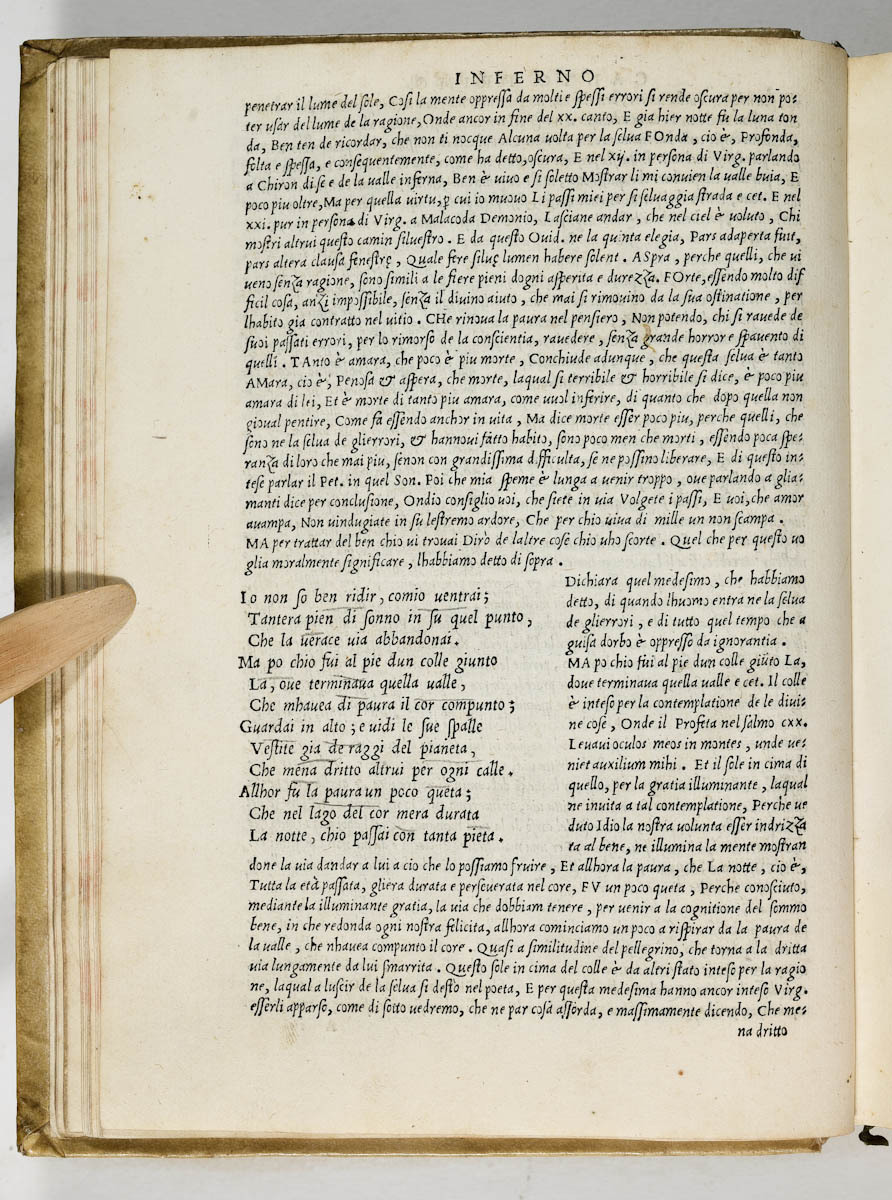 INFERNO
penetrar il lume del sole, Cosi la mente oppressa da molti e spessi errori si rende oscura per non po-
ter usar del lume de la ragione, Onde ancor in fine del xx. canto, E gia hier notte fu la luna ton
da, Ben ten de ricordar, che non ti nocque Alcuna uolta per la selua FOnda, cio è, Profonda,
folta e spessa, e consequentemente, come ha detto, oscura, E nel xij. in persona di Virg. parlando
a Chiron di se e de la ualle inferna, Ben è uiuo e si soletto Mostrar li mi conuien la ualle buia, E
poco piu oltre, Ma per quella uirtu, p cui io muouo Li passi miei per si seluaggia strada e cet. E nel
xxi. pur in persona di Virg. a Malacoda Demonio, Lasciane andar, che nel ciel è uoluto, Chi
mostri altrui questo camin siluestro. E da questo Ouid. ne la quinta elegia, Pars adaperta fuit,
pars altera clausa fenestrę, Quale fere siluę lumen habere solent. ASpra, perche quelli, che ui
ueno senza ragione, sono simili a le fiere pieni dogni asperita e durezza. FOrte, essendo molto dif
ficil cosa, anzi impossibile, senza il diuino aiuto, che mai si rimouino da la sua ostinatione, per
lhabito gia contratto nel uitio. CHe rinoua la paura nel pensiero, Non potendo, chi si rauede de
suoi passati errori, per lo rimorso de la conscientia, rauedere, senza grande horror e spauento di
quelli. TAnto è amara, che poco è piu morte, Conchiude adunque, che questa selua è tanto
AMara, cio è, Penosa & aspera, che morte, laqual si terribile & horribile si dice, è poco piu
amara di lei, Et è morte di tanto piu amara, come uuol inferire, di quanto che dopo quella non
gioual pentire, Come fa essendo anchor in uita, Ma dice morte esser poco piu, perche quelli, che
sono ne la selua de glierrori, & hannoui fatto habito, sono poco men che morti, essendo poca spe-
ranza di loro che mai piu, senon con grandissima difficulta, se ne possino liberare, E di questo in-
tese parlar il Pet. in quel Son. Poi che mia speme è lunga a uenir troppo, oue parlando a glia-
manti dice per conclusione, Ondio consiglio uoi, che siete in uia Volgete i passi, E uoi, che amor
auampa, Non uindugiate in su lestremo ardore, Che per chio uiua di mille un non scampa.
MA per trattar del ben chio ui trouai Dirò de laltre cose chio uho scorte. Quel che per questo uo
glia moralmente significare, lhabbiamo detto di sopra.
Io non so ben ridir, comio uentrai;
Tantera pien di sonno in su quel punto,
Che la uerace uia abbandonai.
Ma po chio fui al pie dun colle giunto
La, oue terminaua quella ualle,
Che mhauea di paura il cor compunto;
Guardai in alto; e uidi le sue spalle
Vestite gia de raggi del pianeta,
Che mena dritto altrui per ogni calle.
Allhor fu la paura un poco queta;
Che nel lago del cor mera durata
La notte, chio passai con tanta pieta.
Dichiara quel medesimo, che habbiamo
detto, di quando lhuomo entra ne la selua
de glierrori, e di tutto quel tempo che a
guisa dorbo è oppresso da ignorantia.
MA po chio fui al pie dun colle giūto La,
doue terminaua quella ualle e cet. Il colle
è inteso per la contemplatione de le diui-
ne cose, Onde il Profeta nel salmo cxx.
Leuaui oculos meos in montes, unde ue-
niet auxilium mihi. Et il sole in cima di
quello, per la gratia illuminante, laqual
ne inuita a tal contemplatione, Perche ue
duto Idio la nostra uolunta esser indrizza
ta al bene, ne illumina la mente mostran
done la uia dandar a lui a cio che lo possiamo fruire, Et allhora la paura, che La notte, cio è,
Tutta la età passata, gliera durata e perseuerata nel core, FV un poco queta, Perche conosciuto,
mediante la illuminante gratia, la uia che dobbiam tenere, per uenir a la cognitione del sommo
bene, in che redonda ogni nostra felicita, allhora cominciamo un poco a rispirar da la paura de
la ualle, che nhauea compunto il core. Quasi a similitudine del pellegrino, che torna a la dritta
uia lungamente da lui smarrita. Questo sole in cima del colle è da altri stato inteso per la ragio
ne, laqual a luscir de la selua si destò nel poeta, E per questa medesima hanno ancor inteso Virg.
esserli apparso, come di sotto uedremo, che ne par cosa assorda, e massimamente dicendo, Che me-
na dritto